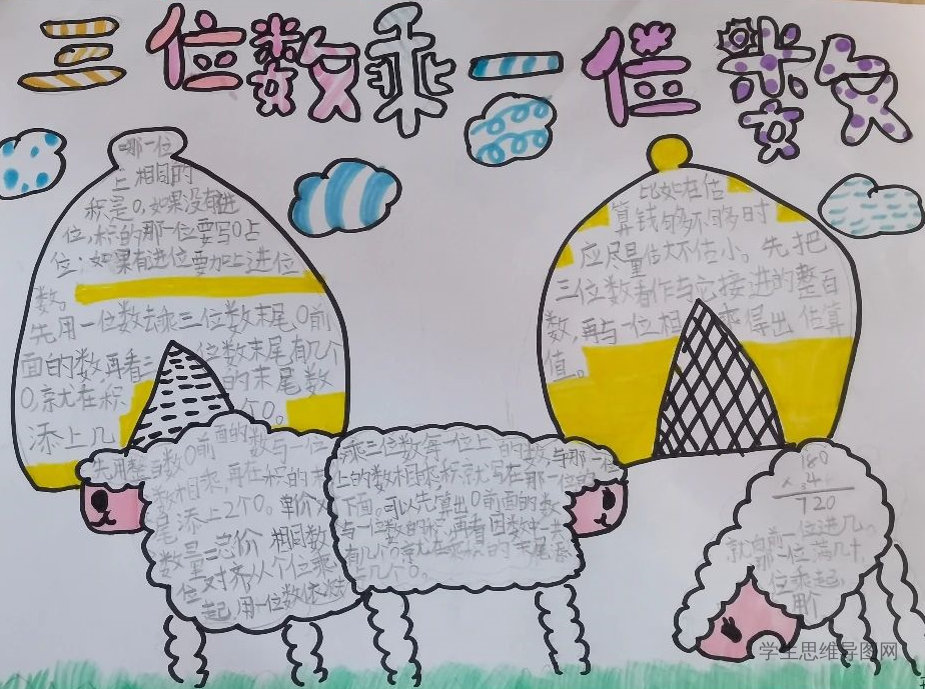 三位数乘一位数
哪一位
上相同的
积是0,如果没有进
位,积的那一位要写0占
位;如果有进位要加上进位
数。
先用一位数去乘三位数末尾0前
面的数,再看三位数末尾有几个
0,就在积的末尾数
添上几个0。
比如在估
算钱够不够时
应尽量估大不估小。先把
三位数看作与它接近的整百
数,再与一位相乘得出估算
值。
先用整百数0前面的数与一位
数相乘,再在积的末
尾添上2个0。单价×
数量=总价 相同数
位对齐,从个位乘
起,用一位数依次
乘三位数每一位上的数,与那一位
上的数相乘,积就写在那一位
下面。可以先算出0前面的数
与一位数的积,再看因数中一共
有几个0,就在乘积的末尾添
几个0。
180
× 4
720
就向前一位进几。
那一位满几十,
位乘起,
用个
学生思维导图网